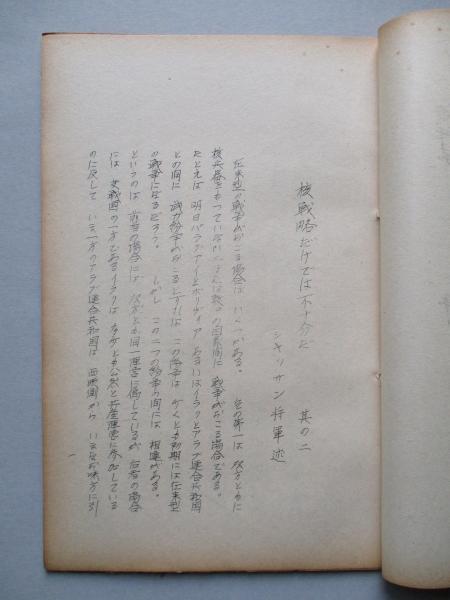 核戦略だけでは不十分だ 其の二
シャッサン将軍述
在来型の戦争がおこる場合は いくつかある。 その第一は 双方ともに
核兵器をもっていない 二または数ヶの国家間に 戦争がおこる場合である。
たとえば 明日パラグアイとボリヴィア あるいはイラクとアラブ連合共和国
との間に 武力紛争がおこるとすれば この紛争は 少くとも初期には在来型
の戦争になるだろう。 しかし この二つの紛争の間には 相違がある。
というのは 前者の場合には 双方とも同一陣営に属しているが 后者の場合
には 交戦国の一方であるイラクは 少くとも公然と共産陣営に参加している
のに反して いま一方のアラブ連合共和国は 西欧側から いまなお味方に引